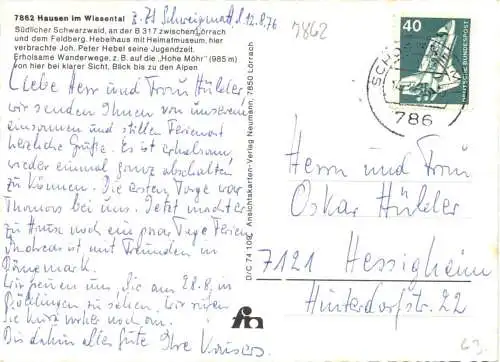 7862 Hausen im Wiesental
Südlicher Schwarzwald, an der B 317 zwischen Lörrach
und dem Feldberg. Hebelhaus mit Heimatmuseum, hier
verbrachte Joh. Peter Hebel seine Jugendzeit.
Erholsame Wanderwege, z. B. auf die „Hohe Möhr" (985 m)
von hier bei klarer Sicht. Blick bis zu den Alpen
z. Zt Schweigmatt, d. 12.8.76
Liebe Herr und Frau Hülder
wir senden Ihnen von unserem
einsamen und stillen Ferienort
herzliche Grüße. Es ist erholsam,
wieder einmal ganz abschalten
zu können. Die ersten Tage war
Thomas bei uns. Jetzt macht er
zu Hause noch ein paar Tage Ferien
Andreas ist mit Freunden in
Dänemark.
Wir freuen uns, Sie am 28.8. in
zu sehen. Wir rufen
Sie kurz vorher noch an.
Bis dahin alles gute Ihre
D/C 74 109 Ansichtskarten-Verlag Neumann, 7850 Lörrach
fn
7862
40
DEUTSCHE BUNDESPOST
786
Herrn und Frau
Oskar Hülder
7121 Hessigheim
Hinterdorfstr. 22
63